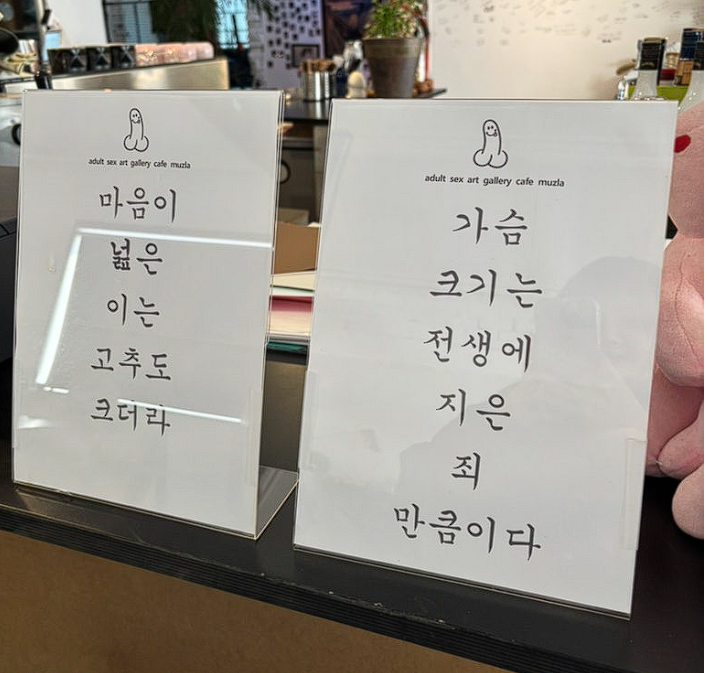 adult sex art gallery cafe muzla
마음이
넓은
이는
고추도
크더라
adult sex art gallery cafe muzla
가슴
크기는
전생에
지은
죄
만큼이다